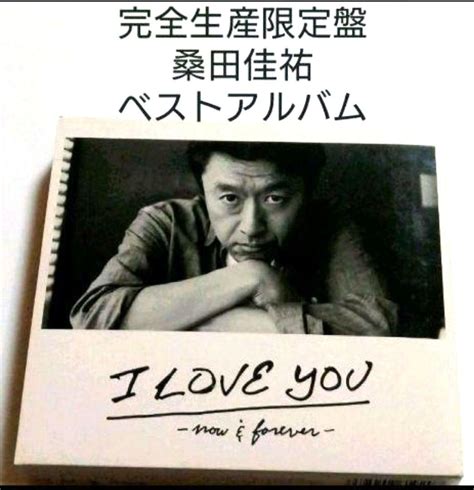 完全生産限定盤
桑田佳祐
ベストアルバム
I LOVE YOU
-now & forever-